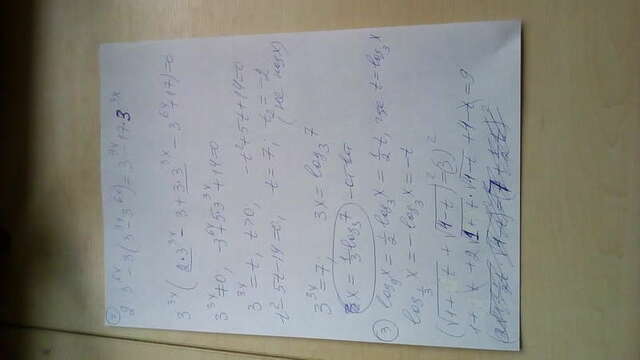 ②
2 · 3^{6x} - 3(3^{3x} - 3^{6x}) = 3^{9x} - 17·3^{3x}
3^{3x}(2·3^{3x} - 3 + 3·3^{3x} - 3^{6x} + 17) = 0
3^{3x} ≠ 0, -3^{6x} + 5·3^{3x} + 14 = 0
3^{3x} = t, t > 0, -t² + 5t + 14 = 0
t² - 5t - 14 = 0, t = 7; t₂ = -2
(не подх)
3^{3x} = 7; 3x = log₃7
x = 1/3 log₃7 - ответ
③ log₉x = 1/2 log₃x = 1/2 t, где t = log₃x
log_{1/3} x = -log₃x = -t
(√1+ t + √4-t)² = (3)²
1 + t + 2√1+t · √4-t + 4-t = 9